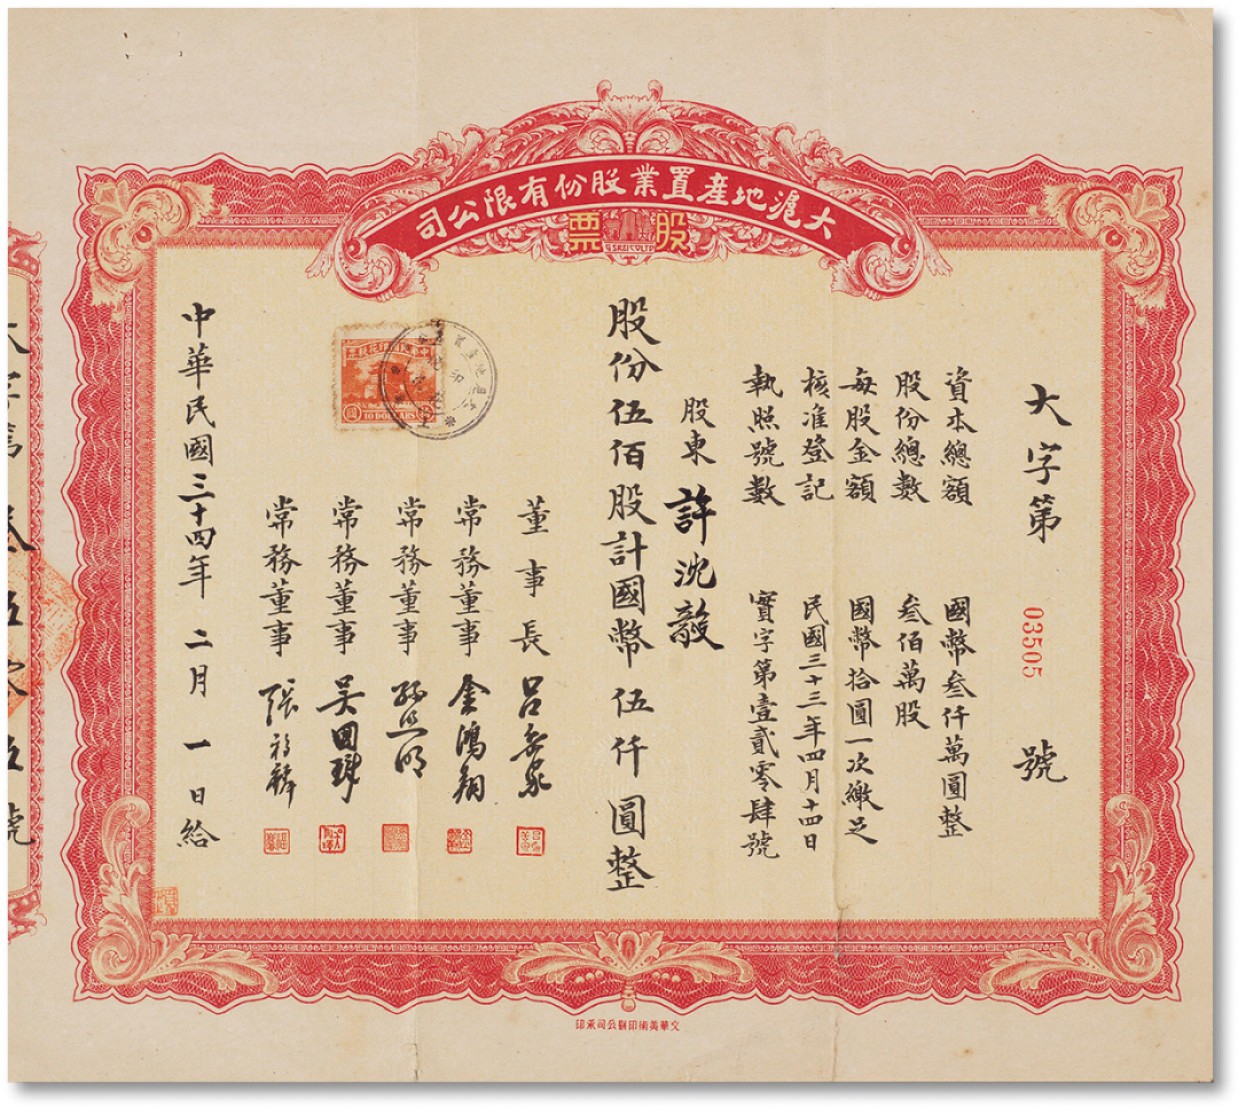 大滬地產置業股份有限公司
股票
G.S.R.E.I.CO.LTD.
大字第 03505 號
資本總額 國幣叁仟萬圓整
股份總數 叁佰萬股
每股金額 國幣拾圓一次繳足
核准登記 民國三十三年四月十四日
執照號數 實字第壹貳零肆號
股東 許沈毅
股份伍佰股計國幣伍仟圓整
董事長 呂
常務董事 金鴻翔
常務董事 孫
常務董事 吳國璋
常務董事 張
10 DOLLARS
中華民國三十四年二月一日給
文華美術印刷公司承印